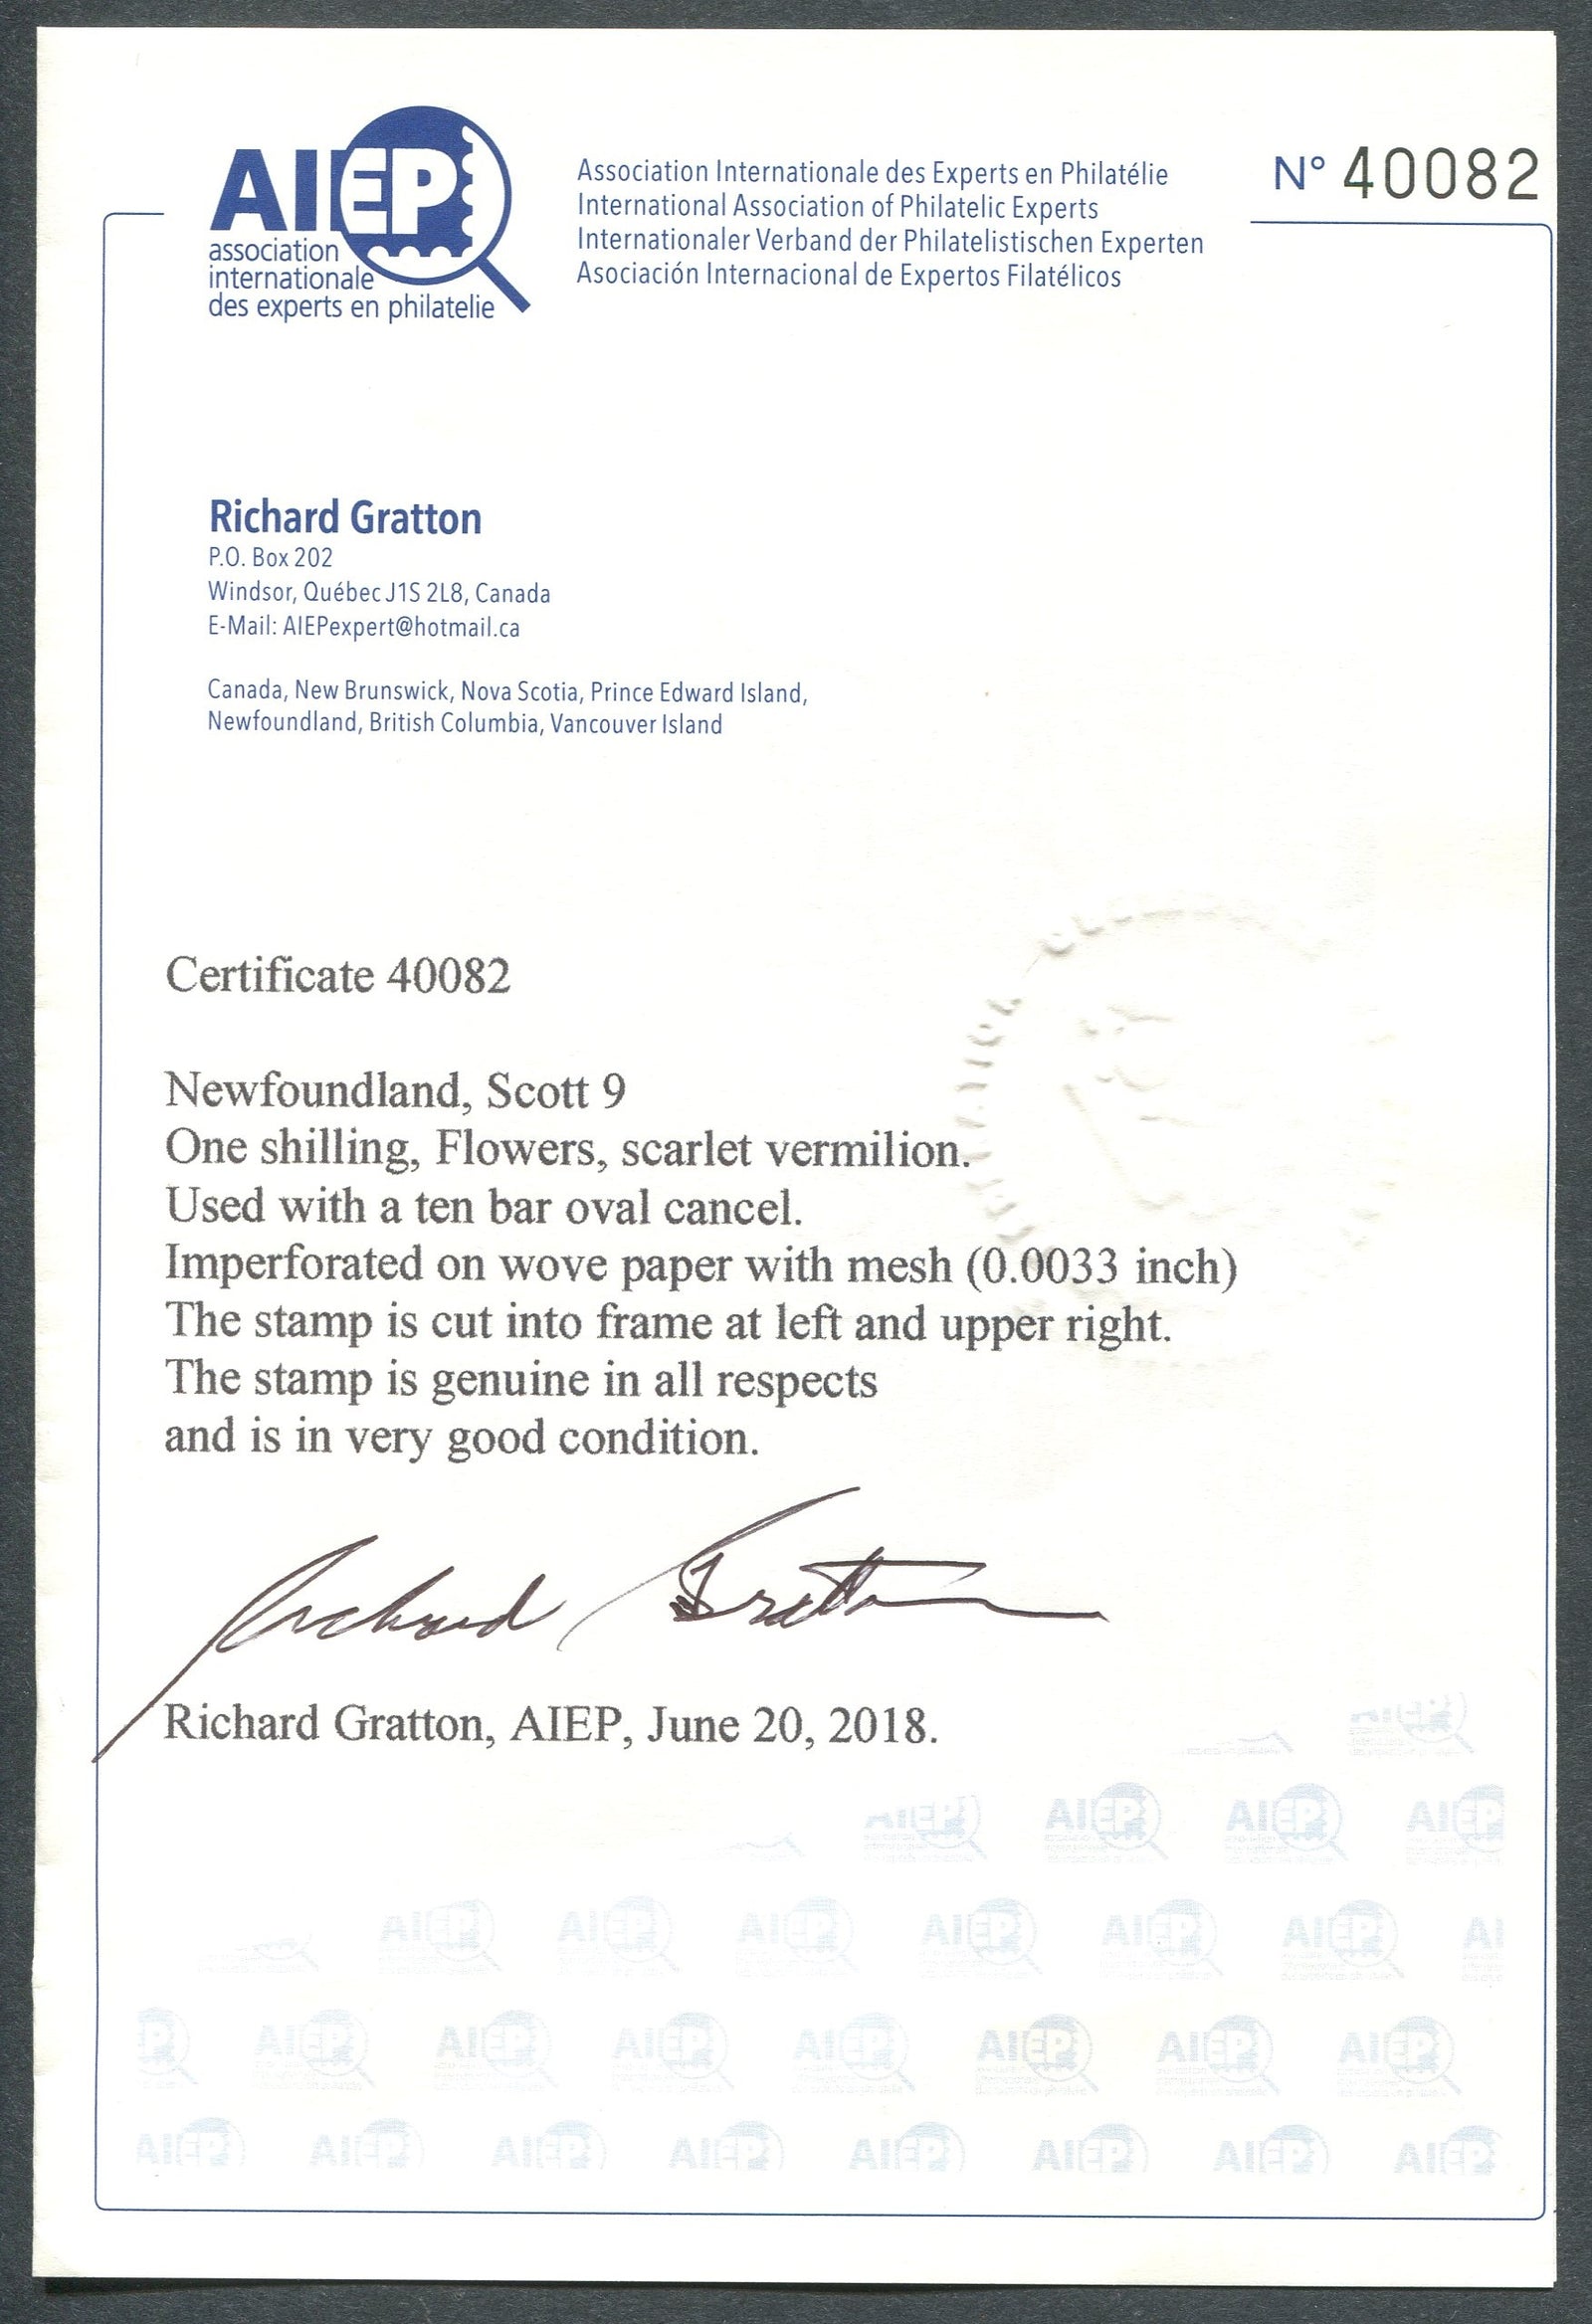 AIEP
association
internationale
des experts en philatelie
Association Internationale des Experts en Philatélie
International Association of Philatelic Experts
Internationaler Verband der Philatelistischen Experten
Asociación Internacional de Expertos Filatélicos
N° 40082
Richard Gratton
P.O. Box 202
Windsor, Québec J1S 2L8, Canada
E-Mail: AIEPexpert@hotmail.ca
Canada, New Brunswick, Nova Scotia, Prince Edward Island,
Newfoundland, British Columbia, Vancouver Island
Certificate 40082
Newfoundland, Scott 9
One shilling, Flowers, scarlet vermilion.
Used with a ten bar oval cancel.
Imperforated on wove paper with mesh (0.0033 inch)
The stamp is cut into frame at left and upper right.
The stamp is genuine in all respects
and is in very good condition.
Richard Gratton
Richard Gratton, AIEP, June 20, 2018.
AIEP
AIEP AIEP AIEP AIEP
AIEP AIEP AIEP AIEP AIEP AIEP AI
EP AIEP AIEP AIEP AIEP AIEP AIEP AIEP
AIEP AIEP AIEP AIEP AIEP AIEP AIEP AIEP